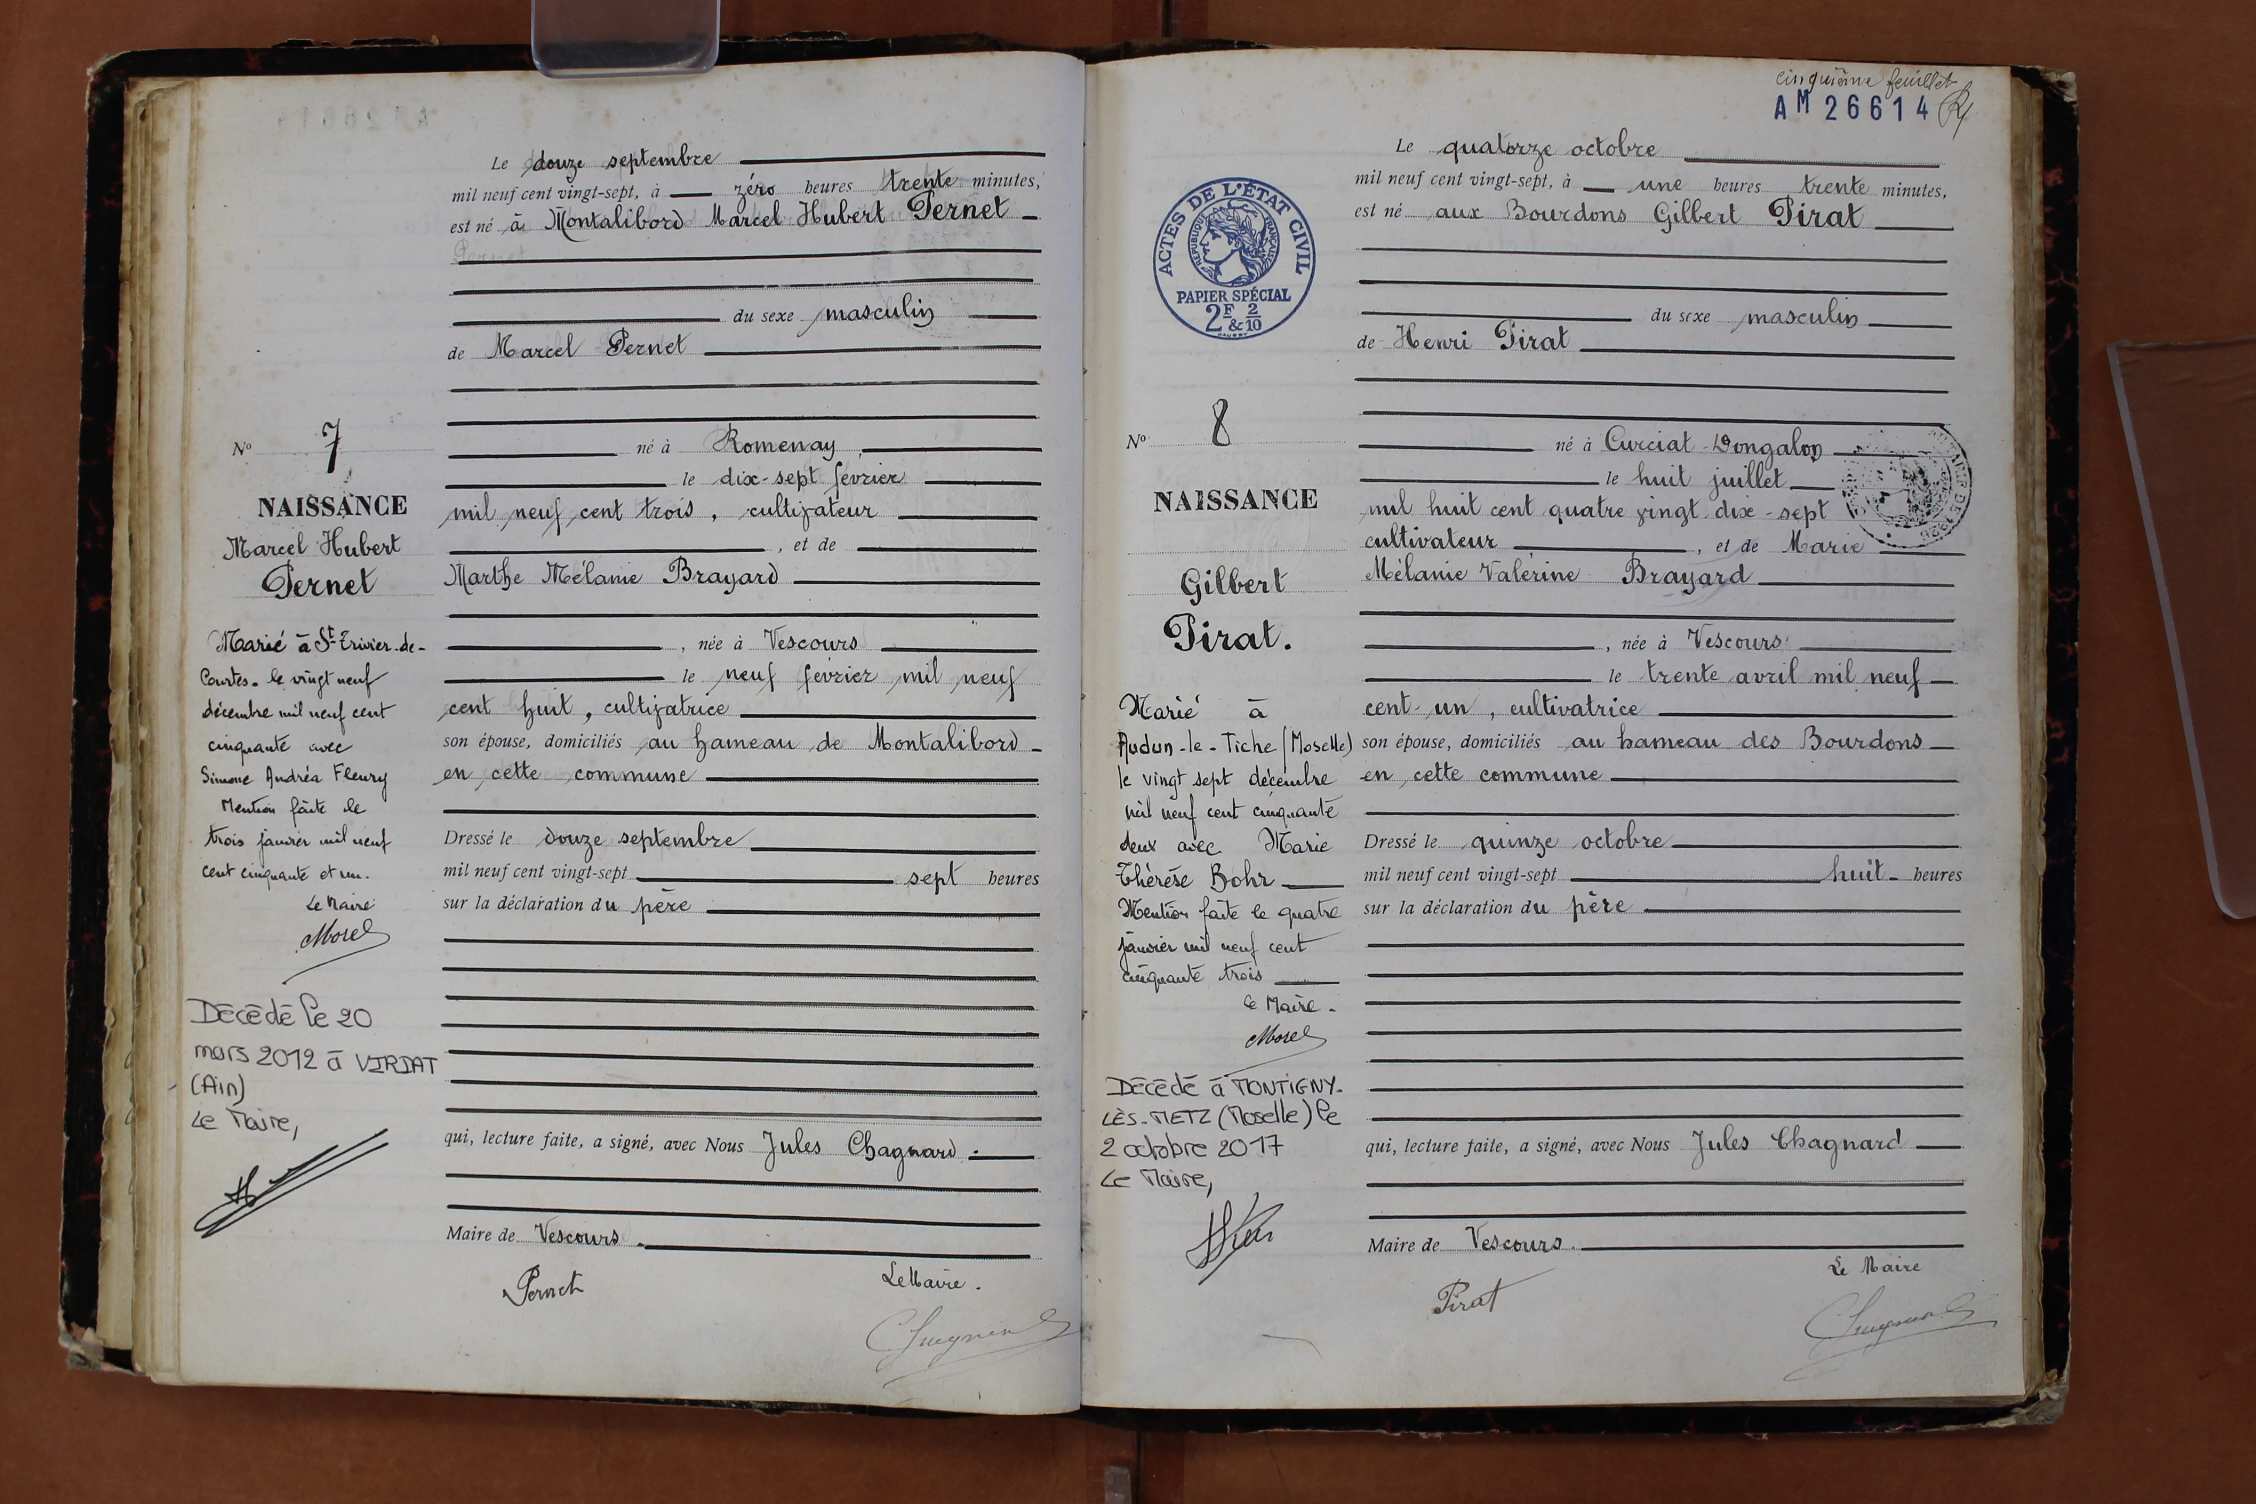 Le douze septembre
mil neuf cent vingt-sept, à zéro heures trente minutes,
est né à Montalibord Marcel Hubert Pernet
du sexe masculin
de Marcel Pernet
né à Romenay,
le dix-sept fevrier
mil neuf cent trois, cultivateur
, et de
Marthe Mélanie Brayard
, née à Vescours
le neuf fevrier mil neuf
cent huit, cultivatrice
son épouse, domiciliés au hameau de Montalibord
en cette commune
Dressé le douze septembre
mil neuf cent vingt-sept sept heures
sur la déclaration du père
qui, lecture faite, a signé, avec Nous Jules Chagnard.
Maire de Vescours.
Pernet
Le Maire.
No 7
NAISSANCE
Marcel Hubert
Pernet
Marié à St-Trivier-de-
Courtes. le vingt neuf
décembre mil neuf cent
cinquante avec
Simone Andréa Fleury
Mention faite le
trois janvier mil neuf
cent cinquante et un.
Le Maire
Morel
Décédé le 20
mars 2012 à VIRIAT
(Ain)
Le Maire,
cinquième feuillet
AM 26614
Le quatorze octobre
mil neuf cent vingt-sept, à une heures trente minutes,
est né aux Bourdons Gilbert Pirat
du sexe masculin
de Henri Pirat
né à Curciat-Dongalon
le huit juillet
mil huit cent quatre vingt dix-sept
cultivateur , et de Marie
Mélanie Valérine Brayard
, née à Vescours
le trente avril mil neuf
cent-un, cultivatrice
son épouse, domiciliés au hameau des Bourdons
en cette commune
Dressé le quinze octobre
mil neuf cent vingt-sept huit heures
sur la déclaration du père
qui, lecture faite, a signé, avec Nous Jules Chagnard
Maire de Vescours.
Le Maire
Pirat
ACTES DE L'ÉTAT CIVIL
RÉPUBLIQUE FRANÇAISE
PAPIER SPÉCIAL
2F & 2/10
No 8
NAISSANCE
Gilbert
Pirat.
Marié à
Audun-le-Tiche (Moselle)
le vingt sept décembre
mil neuf cent cinquante
deux avec Marie
Thérèse Bohr
Mention faite le quatre
janvier mil neuf cent
cinquante trois
Le Maire.
Morel
Décédé à MONTIGNY-
LÈS-METZ (Moselle) le
2 octobre 2017
Le Maire,